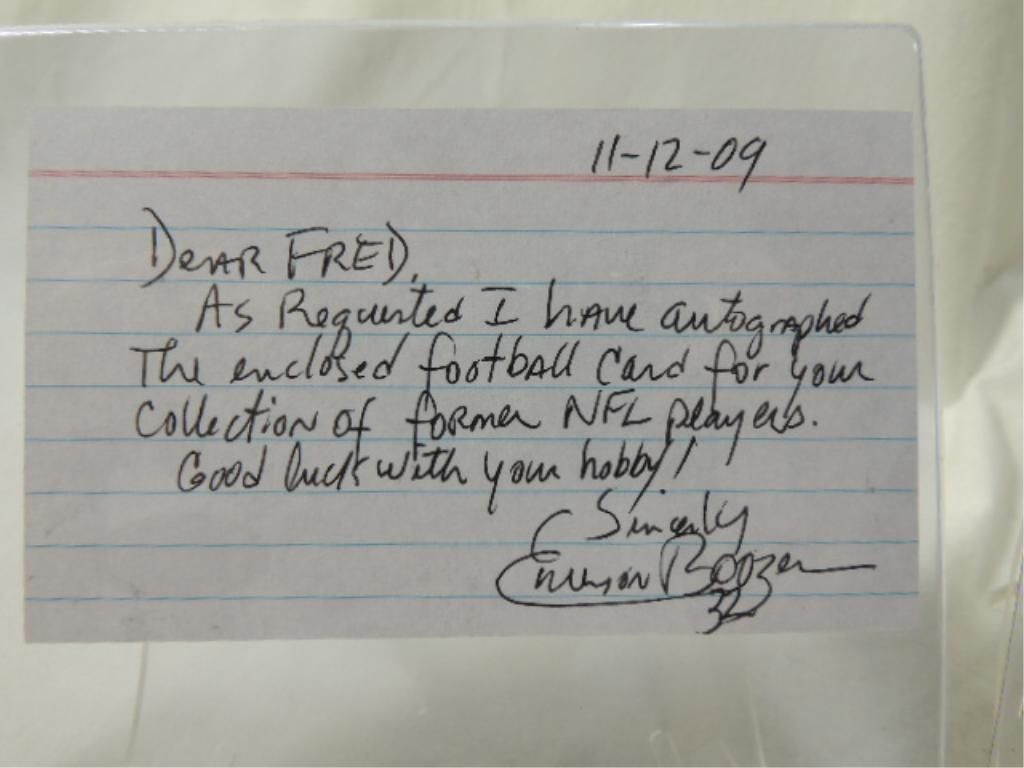 11-12-09
Dear FRED,
As Requested I have autographed
The enclosed football Card for your
Collection of former NFL players.
Good luck with your hobby!
Sincerely
Emerson Boozer
32